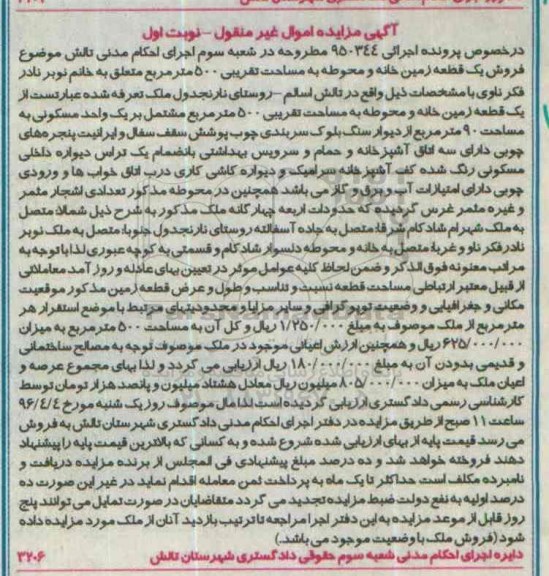 آگهی مزایده اموال غیر منقول – نوبت اول
درخصوص پرونده اجرائی ۹۵۰۳۴۴ مطروحه در شعبه سوم اجرای احکام مدنی تالش موضوع
فروش یک قطعه زمین خانه و محوطه به مساحت تقریبی ۵۰۰ متر مربع متعلق به خانم نوبر نادر
فکر ناوی با مشخصات ذیل واقع در تالش اسالم – روستای نارنجدول ملک تعرفه شده عبارتست از
یک قطعه زمین خانه و محوطه به مساحت تقریبی ۵۰۰ متر مربع مشتمل بر یک واحد مسکونی به
مساحت ۹۰ متر مربع از دیوار سنگ بلوک سربندی چوب پوشش سقف سفال و ایرانیت پنجره های
چوبی دارای سه اتاق آشپزخانه و حمام و سرویس بهداشتی بانضمام یک تراس دیواره داخلی
مسکونی رنگ شده کف آشپزخانه سرامیک و دیواره کاشی کاری درب اتاق خواب ها و ورودی
چوبی دارای امتیازات آب و برق و گاز می باشد همچنین در محوطه مذکور تعدادی اشجار مثمر
و غیره مثمر غرس گردیده که حدودات اربعه چهارگانه ملک مذکور به شرح ذیل شمالا: متصل
به ملک شهرام شادکام شرقا: متصل به جاده آسفالته روستای نارنجدول جنوبا: متصل به ملک نوبر
نادر فکر ناو و غربا: متصل به خانه و محوطه دلسوار شادکام و قسمتی به کوچه عبوری لذا با توجه به
مراتب معنونه فوق الذکر و ضمن لحاظ کلیه عوامل موثر در تعیین بهای عادله و روز آمد معاملاتی
از قبیل معتبر ارتباطی مساحت قطعه نسبت و تناسب و طول و عرض قطعه زمین مذکور موقعیت
مکانی و جغرافیایی و وضعیت توپوگرافی و سایر مزایا و محدودیتهای مرتبط با موضع استقرار هر
متر مربع از ملک موصوف به مبلغ ۱/۲۵۰/۰۰۰ ریال و کل آن به مساحت ۵۰۰ متر مربع به میزان
۶۲۵/۰۰۰/۰۰۰ ریال و همچنین ارزش اعیانی موجود در ملک موصوف توجه به مصالح ساختمانی
و قدیمی بدودن آن به مبلغ ۱۸۰/۰۰۰/۰۰۰ ریال ارزیابی می گردد و لذا بهای مجموع عرصه و
اعیان ملک به میزان ۸۰۵/۰۰۰/۰۰۰ میلیون ریال معادل هشتاد میلیون و پانصد هزار تومان توسط
کارشناسی رسمی دادگستری ارزیابی گردیده است لذا مال موصوف روز یک شنبه مورخ ۹۶/۴/۴
ساعت ۱۱ صبح از طریق مزایده در دفتر اجرای احکام مدنی دادگستری شهرستان تالش به فروش
می رسد قیمت پایه از بهای ارزیابی شده شروع شده و به کسانی که بالاترین قیمت پایه را پیشنهاد
دهند فروخته خواهد شد و ده درصد مبلغ پیشنهادی فی المجلس از برنده مزایده دریافت و
نامبرده مکلف است حداکثر تا یک ماه به پرداخت ثمن معامله اقدام نماید در غیر این صورت ده
درصد اولیه به نفع دولت ضبط مزایده تجدید می گردد متقاضایان در صورت تمایل می توانند پنج
روز قبل از موعد مزایده به این دفتر اجرا مراجعه تا ترتیب بازدید آنان از ملک مورد مزایده داده
شود (فروش ملک با وضعیت موجود می باشد.)
دایره اجرای احکام مدنی شعبه سوم حقوقی دادگستری شهرستان تالش ۳۲۰۶